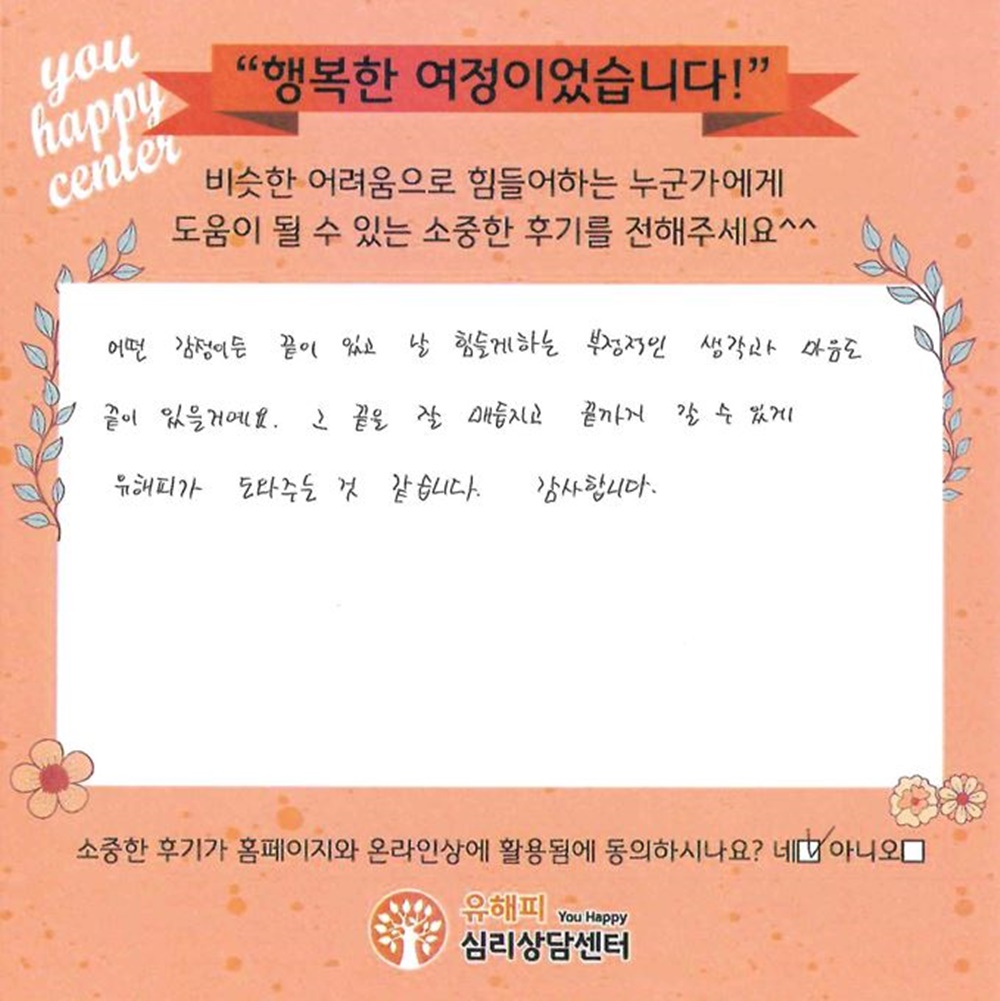 you
happy
center
“행복한 여정이었습니다!”
비슷한 어려움으로 힘들어하는 누군가에게
도움이 될 수 있는 소중한 후기를 전해주세요^^
어떤 감정이든 끝이 있고 날 힘들게하는 부정적인 생각과 마음도
끝이 있을거예요. 그 끝을 잘 매듭지고 끝까지 갈 수 있게
유해피가 도와주는 것 같습니다. 감사합니다.
소중한 후기가 홈페이지와 온라인상에 활용됨에 동의하시나요? 네☑아니오☐
유해피 You Happy
심리상담센터